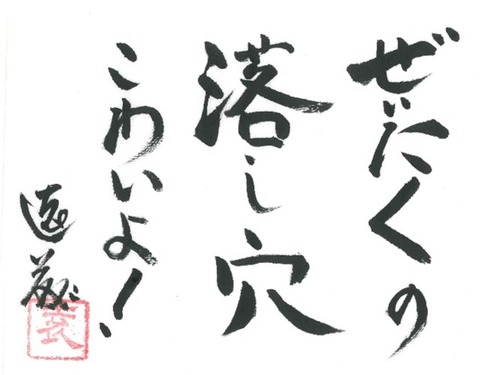 ぜいたくの
落し穴
こわいよ！